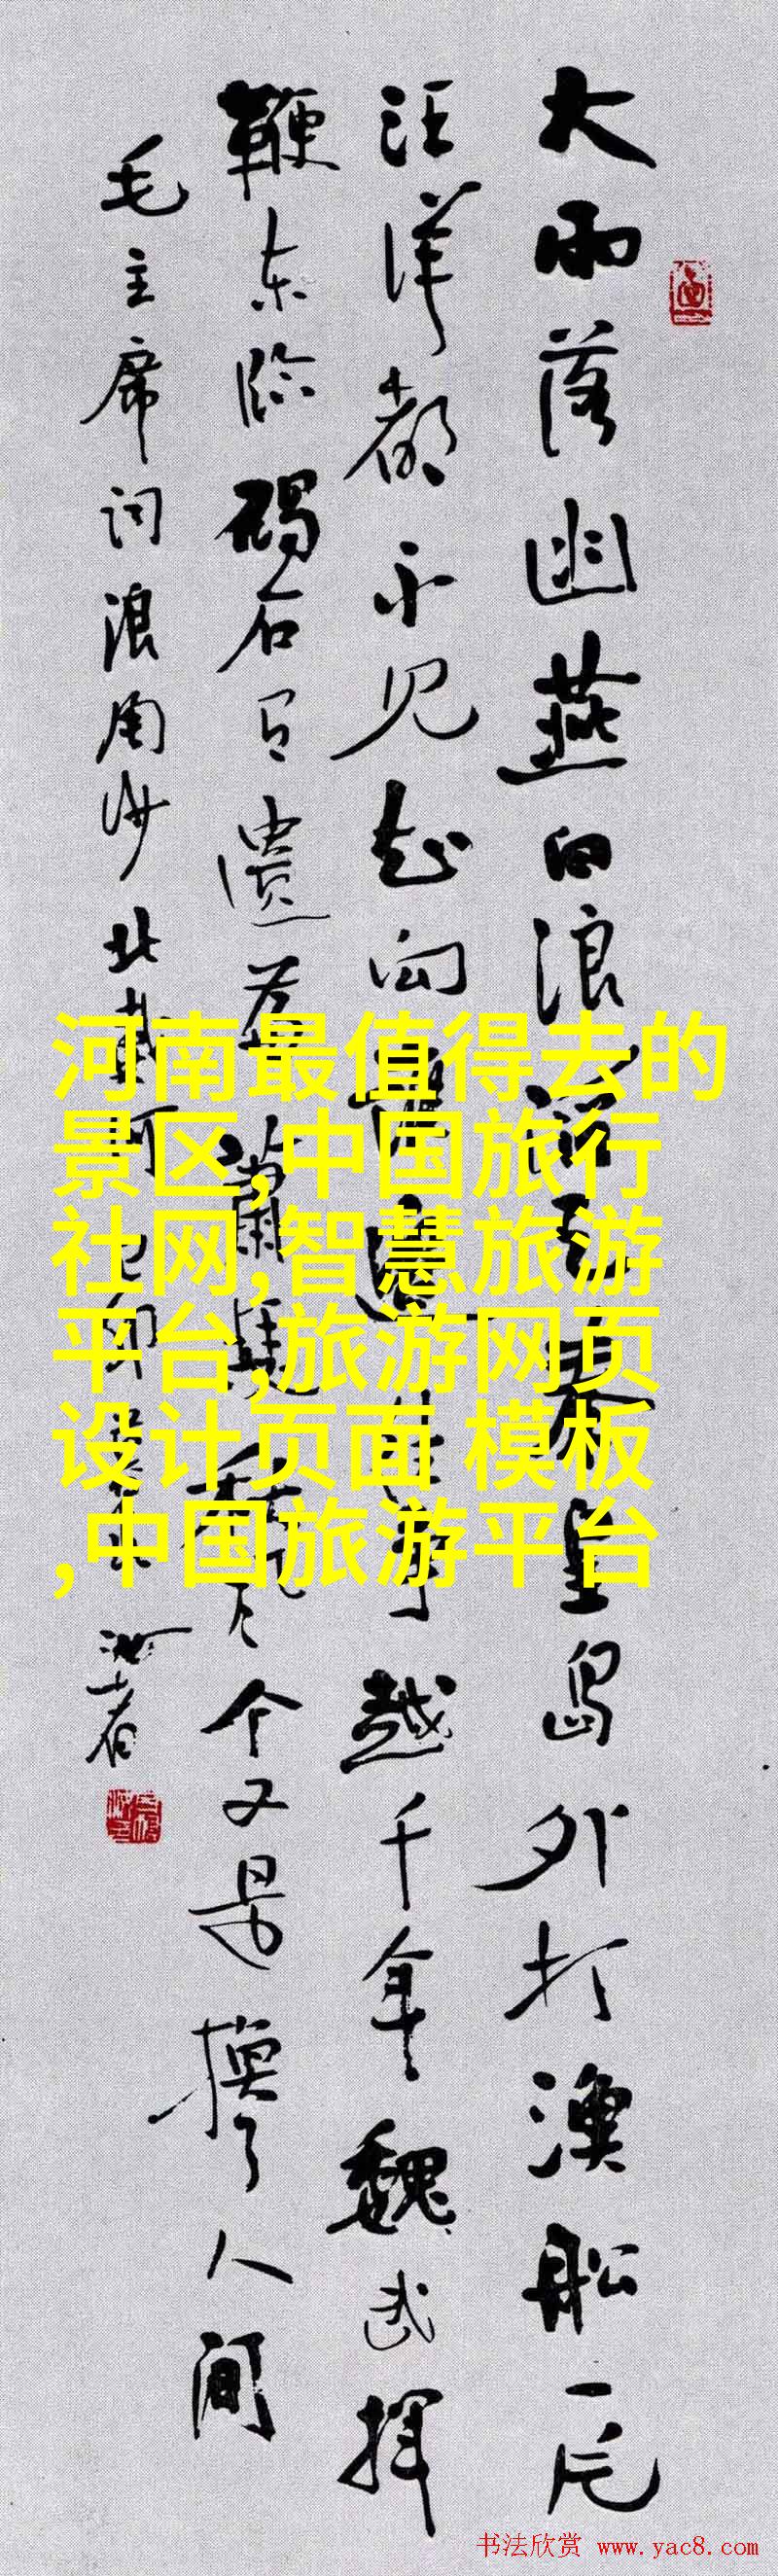 大雨落幽燕白浪滔天秦皇岛外打漁船一片
汪洋都不见知向谁边往事越千年魏武揮
鞭东临碣石有遗篇萧瑟秋风今又是换了人间
毛主席词浪淘沙北戴河
河南最值得去的
景区,中国旅行
社网,智慧旅游
平台,旅游网页
设计页面 模板
,中国旅游平台
书法欣赏 www.yac8.com